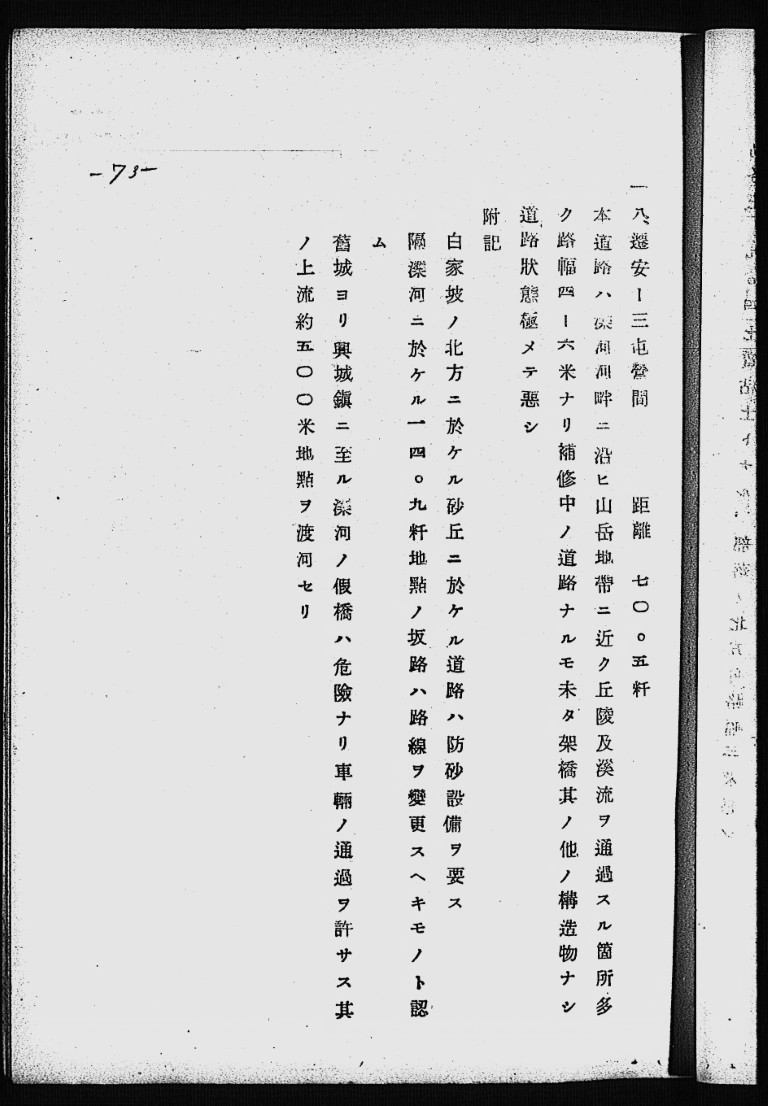 一八、遷安ー三屯營間　　　距離　七〇。五粁
本道路ハ灤河河畔ニ沿ヒ山岳地帶ニ近ク丘陵及溪流ヲ通過スル箇所多
ク路幅四ー六米ナリ補修中ノ道路ナルモ未タ架橋其ノ他ノ構造物ナシ
道路狀態極メテ惡シ
附記
白家坡ノ北方ニ於ケル砂丘ニ於ケル道路ハ防砂設備ヲ要ス
隔灤河ニ於ケル一四。九粁地點ノ坂路ハ路線ヲ變更スヘキモノト認
ム
舊城ヨリ興城鎭ニ至ル灤河ノ假橋ハ危險ナリ車輛ノ通過ヲ許サス其
ノ上流約五〇〇米地點ヲ渡河セリ
-73-